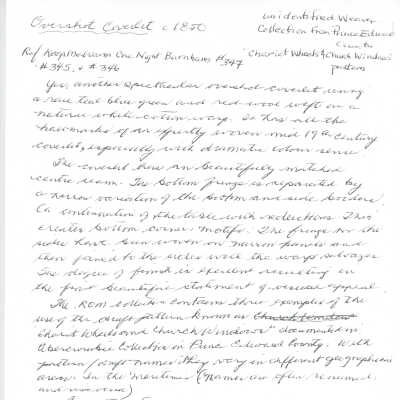 Overshot Coverlet c 1850
unidentified Weaver
Collection from Prince Edward
County
Ref Keep me warm One Night Burnhams #347
#345, + #346
Chariot Wheels & Church Windows
pattern
Yes, another spectacular overshot coverlet using
a rare teal blue green and red wool weft on a
natural white cotton warp. It has all the
hallmarks of an expertly woven mid 19th century
coverlet, especially with dramatic colour sense
The coverlet has a beautifully matched
centre seam. The bottom fringe is separated by
a narrow variation of the bottom and side borders.
(a continuation of the table with reductions. This
creates bottom corner motifs. The fringe for the
sides have been woven on narrow bands and
then joined to the sides with the warp selvages
The degree of finish is excellent resulting in
the most beautiful statement of visual appeal.
The ROM collection contains three examples of the
use of the design pattern known as Church Windows
Chariot Wheels and Church Windows" documented in
Abercrombie Collection in Prince Edward County. With
pattern / draft names they vary in different geographical
areas in the Maritimes (names are often renamed
and